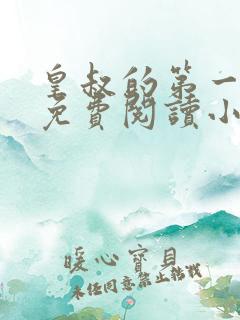 皇叔的第一
免費閱讀小
暖心寶貝
未经同意禁止转载